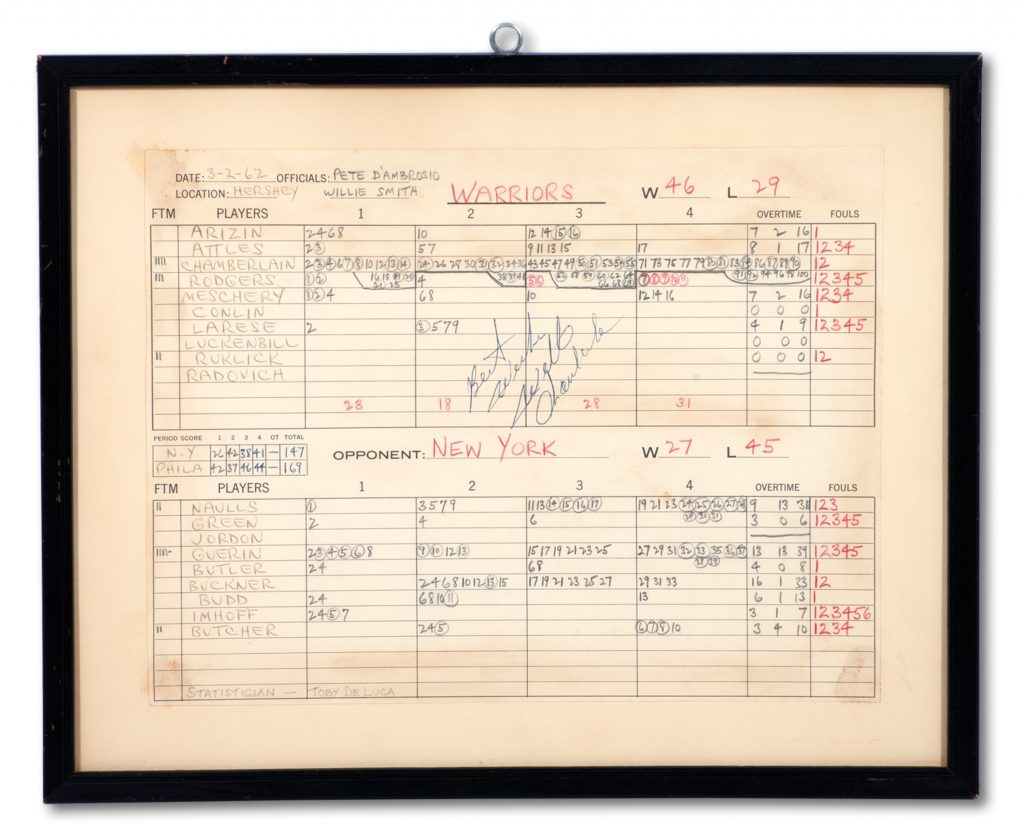 DATE: 3-2-62 OFFICIALS: PETE D'AMBROSIO
LOCATION: HERSHEY WILLIE SMITH WARRIORS W 46 L 29
FTM PLAYERS 1 2 3 4 OVERTIME FOULS
ARIZIN 2 4 6 8 10 12 14 15 16 7 2 16 1
ATTLES 2 3 5 7 9 11 13 15 17 8 1 17 1 2 3 4
CHAMBERLAIN 2 3 4 6 7 8 10 12 13 14 24 26 28 30 31 32 34 36 43 45 47 49 50 51 53 54 55 71 73 75 77 79 80 81 83 84 86 87 89 90 1 2
RODGERS 1 2 4 1 2 3 4 5
MESCHERY 1 2 4 6 8 10 12 14 16 7 2 16 1 2 3 4
CONLIN 0 0 0 1
LARESE 2 3 5 7 9 4 1 9 1 2 3 4 5
LUCKENBILL 0 0 0
RUKLICK 0 0 0 1 2
RADOVICH
Best Wilt Chamberlain
23 18 28 31
PERIOD SCORE 1 2 3 4 OT TOTAL
N.Y. 26 42 38 41 — 147
PHILA. 42 37 46 44 — 169
OPPONENT: NEW YORK W 27 L 45
FTM PLAYERS 1 2 3 4 OVERTIME FOULS
NAULLS 1 3 5 7 9 11 13 14 15 16 17 19 21 23 24 25 26 27 28 9 13 31 1 2 3
29 30 31
GREEN 2 4 6 3 0 6 1 2 3 4 5
JORDON
GUERIN 2 3 4 5 6 8 9 10 12 13 15 17 19 21 23 25 27 29 31 32 33 35 36 37 13 13 39 1 2 3 4 5
38 39
BUTLER 2 4 6 8 4 0 8 1
BUCKNER 2 4 6 8 10 12 13 15 17 19 21 23 25 27 29 31 33 16 1 33 1 2
BUDD 2 4 6 8 10 11 13 6 1 13 1
IMHOFF 2 4 5 7 3 1 7 1 2 3 4 5 6
BUTCHER 2 4 5 6 7 8 10 3 4 10 1 2 3 4
STATISTICIAN — TOBY DE LUCA